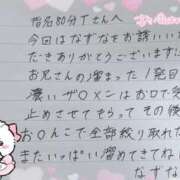 指名80分Tさんへ
今回はなずなをお誘いいた
だきありがとうございます
お兄さんの溜まった1発目
濃いザ〇メンはお口で受け
止めさせてもらってその後
おのんこで全部絞り取れた
またいっぱい溜めてきてね
なずな